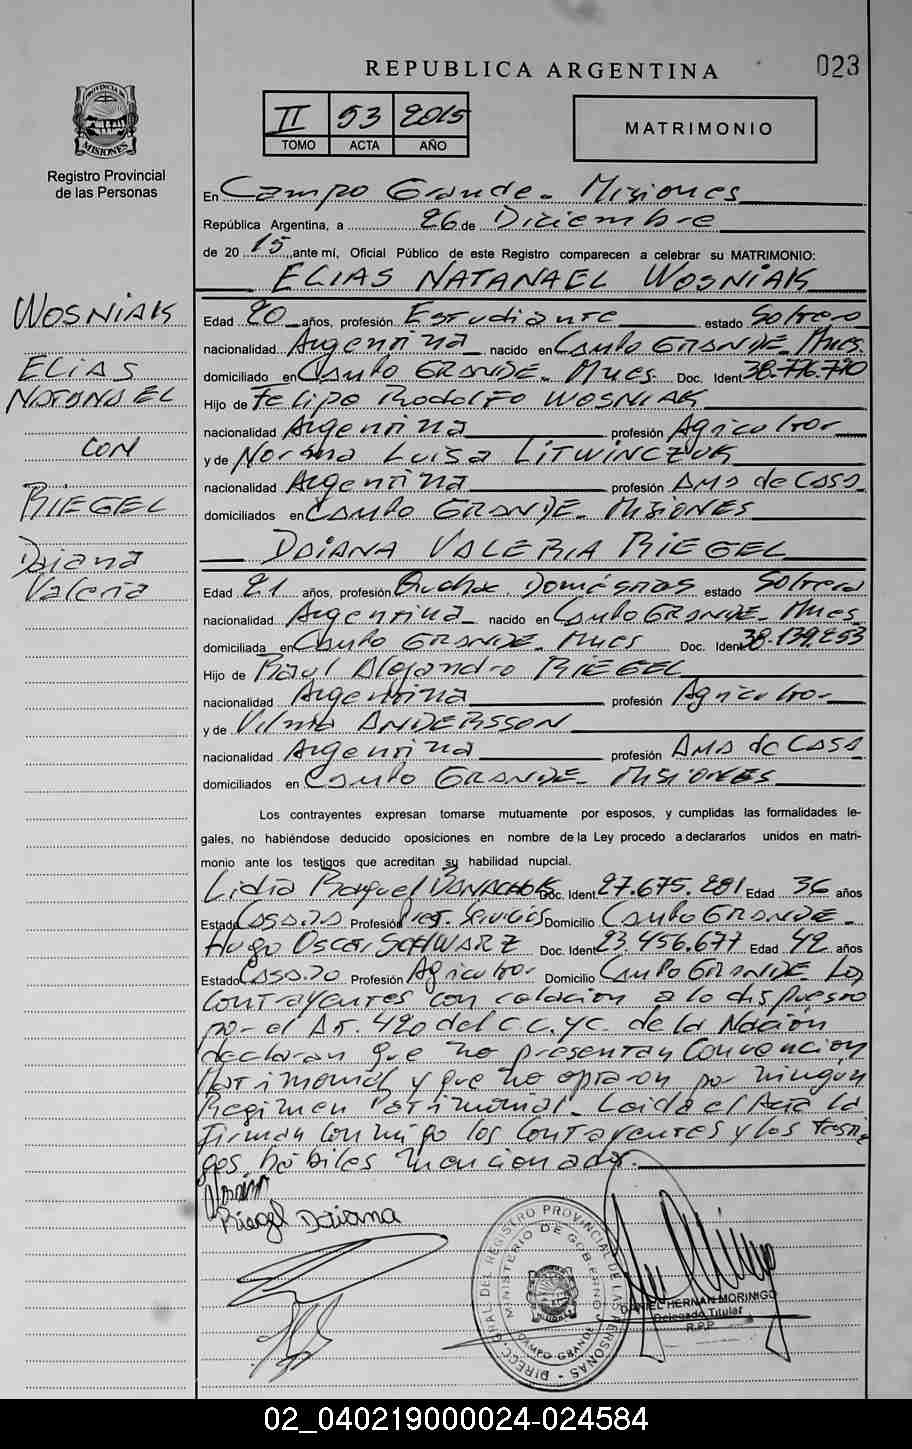 REPUBLICA ARGENTINA
023
II 53 2015
TOMO ACTA AÑO
MATRIMONIO
PROVINCIA DE MISIONES
Registro Provincial
de las Personas
En Campo Grande - Misiones
República Argentina, a 26 de Diciembre
de 2015, ante mí, Oficial Público de este Registro comparecen a celebrar su MATRIMONIO:
ELIAS NATANAEL WOSNIAK
WOSNIAK
ELIAS
NATANAEL
CON
RIEGEL
Daiana
Valeria
Edad 20 años, profesión Estudiante estado Soltero
nacionalidad Argentina nacido en Campo GRANDE - Mnes.
domiciliado en Campo GRANDE - Mnes. Doc. Ident. 38.776.770
Hijo de Felipe Rodolfo WOSNIAK
nacionalidad Argentina profesión Agricultor
y de Norma Luisa LITWINCZUK
nacionalidad Argentina profesión Ama de Casa
domiciliados en Campo GRANDE - MISIONES
DAIANA VALERIA RIEGEL
Edad 21 años, profesión Domésticos estado Soltera
nacionalidad Argentina nacido en Campo GRANDE - Mnes
domiciliada en Campo GRANDE - Mnes Doc. Ident. 38.139.253
Hijo de Raul Alejandro RIEGEL
nacionalidad Argentina profesión Agricultor
y de Vilma ANDERSSON
nacionalidad Argentina profesión Ama de Casa
domiciliados en Campo GRANDE - MISIONES
Los contrayentes expresan tomarse mutuamente por esposos, y cumplidas las formalidades le-
gales, no habiéndose deducido oposiciones en nombre de la Ley procedo a declararlos unidos en matri-
monio ante los testigos que acreditan su habilidad nupcial.
Lidia Raquel Doc. Ident. 27.675.281 Edad 36 años
Estado Casada Profesión Servicios Domicilio Campo GRANDE -
Hugo Oscar SCHWARZ Doc. Ident. 23.456.677 Edad 42 años
Estado Casado Profesión Agricultor Domicilio Campo GRANDE - Los
contrayentes con relacion a lo dispuesto
por el Art. 420 del C.C.yC. de la Nación
declaran que no presentan Convencion
Patrimonial y que no optaron por ningun
Regimen Patrimonial - Leida el Acta la
firman conmigo los contrayentes y los testi-
gos hábiles mencionados.
Riegel Daiana
DIRECC. GRAL. DEL REGISTRO PROVINCIAL DE LAS PERSONAS
MINISTERIO DE GOBIERNO
CAMPO GRANDE
DANIEL HERNAN MORINIGO
Delegado Titular
R.P.P.
02_040219000024-024584